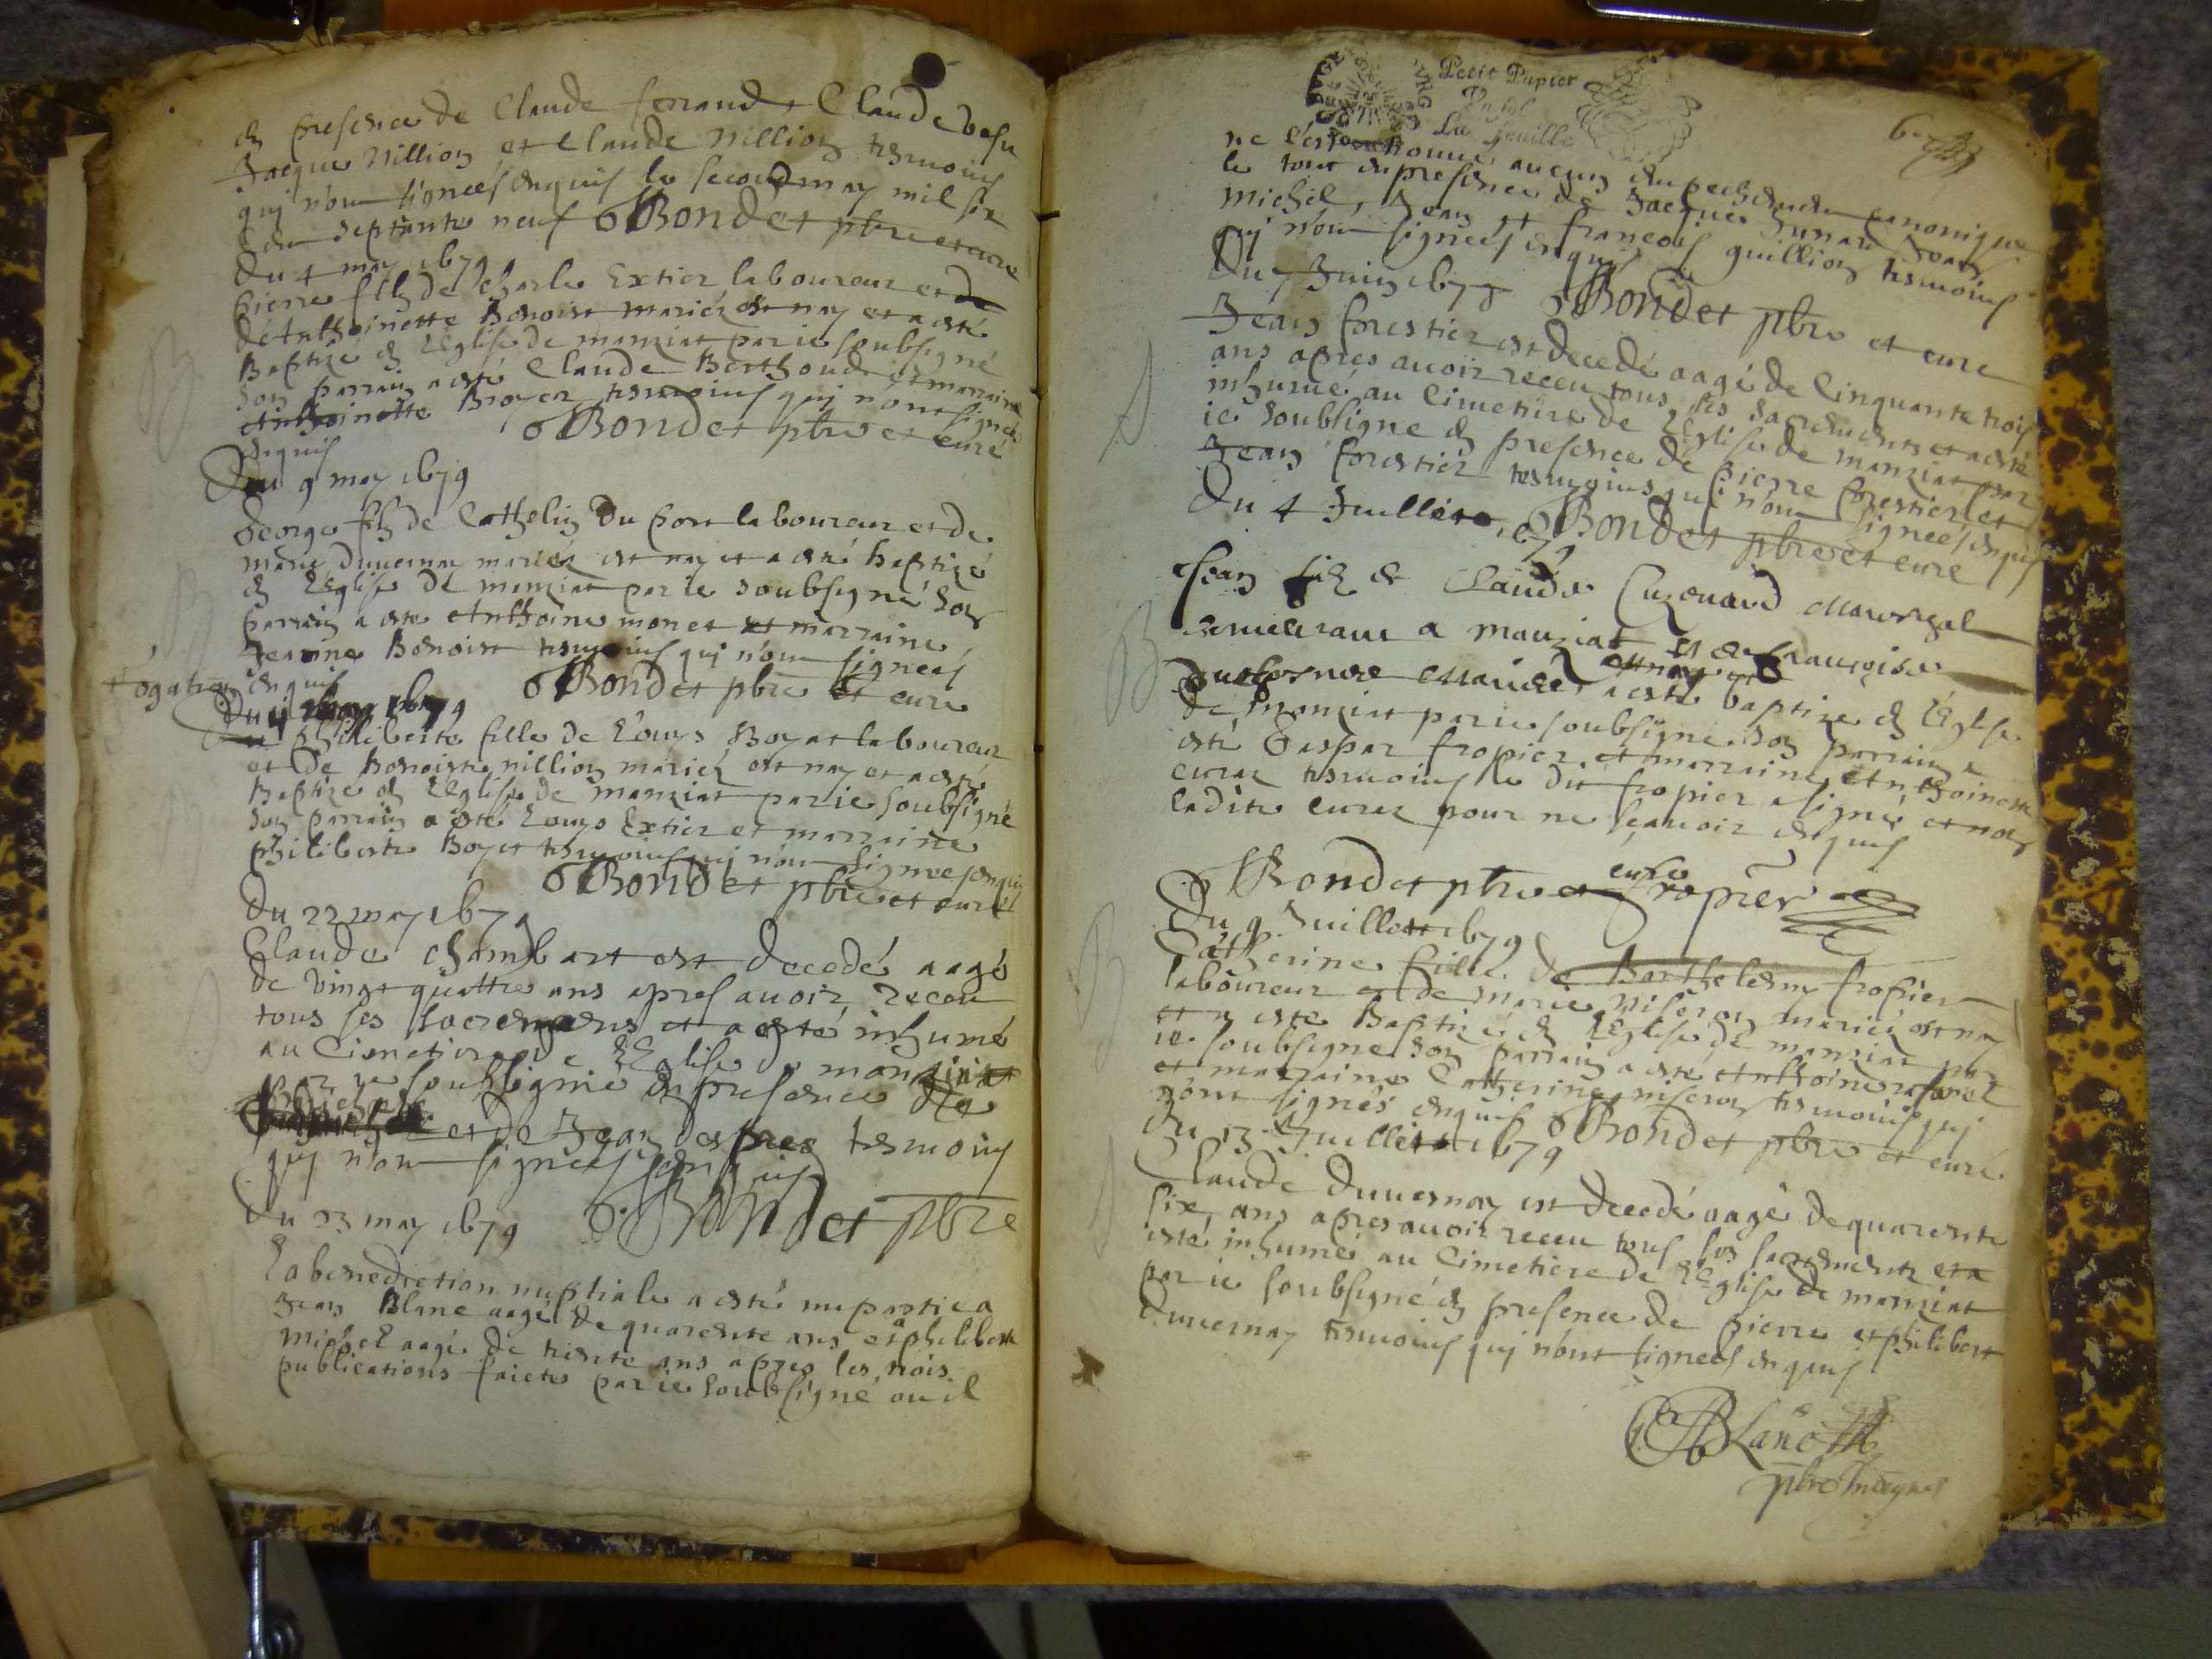 en presence de Claude ferrand et Claude
Jacque Nillion et Claude Nillion tesmoins
qui n'ont signees enquis le second may mil six
cens septante neuf Bondet pbre et curé
Du 4 may 1679
Pierre filz de Charle Extier laboureur et de
de Anthoinette Benoist mariéz est nay et a esté
Baptizé en l'Eglise de manziat par je soubsigné
son parrain a esté Claude Berthoud et marraine
Anthoinette Broyer tesmoins qui n'ont signes
enquis Bondet pbre et curé
Du 9 may 1679
George filz de Catthelin Du port laboureur et de
marie Duuernay mariéz est nay et a esté baptizé
en l'Eglise de manziat par je soubsigné son
parrain a esté Anthoine monet et marraine
Jeanne Benoist tesmoins qui n'ont signees
enquis Bondet pbre et curé
Du may 1679
Philiberte fille de Louys Boyat laboureur
et de Benoiste nillion mariéz est nay et a esté
Baptizé en l'Eglise de manziat par je soubsigné
son parrain a esté Louys Extier et marraine
philiberte Boyat tesmoins qui n'ont signees enquis
Bondet pbre et curé
Du 22 may 1679
Claude Chambart est decedé aagé
de vingt quattre ans apres auoir receu
tous ses sacremens et a esté inhumé
au Cimetiere de l'Eglise de manziat
par je soubsigné en presence de
et de Jean despres tesmoins
qui n'ont signees enquis
Du 23 may 1679 Bondet pbre
La benediction nuptiale a esté impartie a
Jean Blanc aagé de quarente ans et a philiberte
Michel aagé de trente ans apres les trois
publications faicte par je soubsigné ou il
Petit Papier
La feuille
ne c'est trouué aucun empechement canonique
le tout en presence de Jacque Jean
michel, Jean et francois guillion tesmoins
qui n'ont signees enquis
Du 7 Juin 1679 Bondet pbre et curé
Jean forestier est decedé aagé de Cinquante trois
ans apres auoir receu tous ses sacrements et a esté
inhumé au Cimetiere de l'Eglise de manziat par
je soubsigné en presence de pierre forestier et
Jean forestier tesmoins qui n'ont signees enquis
Du 4 Juillet 1679 Bondet pbre et curé
Jean filz de Claude Maresgal
a manziat et de françoise
mariéz est nay et a esté baptizé en l'Eglise
de manziat par je soubsigné son parrain a
esté Gaspar fropier et marraine Anthoinette
curaz tesmoins le dit fropier a signé et non
ladite curaz pour ne scauoir enquis
Bondet pbre et curé fropier
Du 9 Juillet 1679
Catherine fille de Barthelemy fropier
laboureur et de marie Niseron mariéz est nay
et a esté Baptizé en l'Eglise de manziat par
je soubsigné son parrain a esté Anthoine
et marraine Catherine niseron tesmoins qui
n'ont signés enquis Bondet pbre et curé
Du 13 Juillet 1679
Claude Duuernay est decedé aagé de quarente
six ans apres auoir receu tous ses sacrements et a
esté inhumé au Cimetiere de l'Eglise de manziat
par je soubsigné en presence de pierre et philibert
Duuernay tesmoins qui n'ont signees enquis
Blanc
pbre